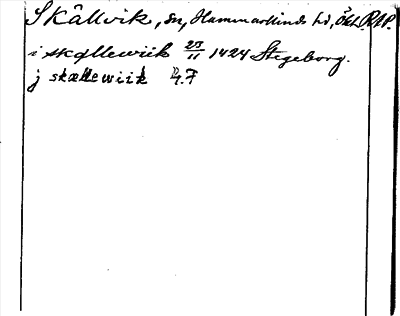 Skällvik, sn, Hammarkinds hd, Ögl. RAP.
i skællewiik 23/11 1424 Stegeborg.
j skællewiik